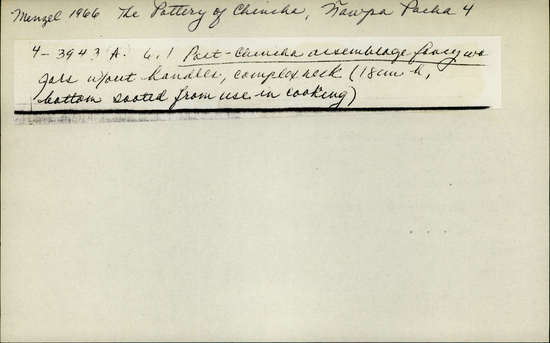 Menzel 1966 The Pottery of Chincha, Ñawpa Pacha 4
4-3943 A. 6.1 Post-Chincha assemblage fancy wa
jars w/out handles, complex neck (18cm. h,
bottom sooted from use in cooking)